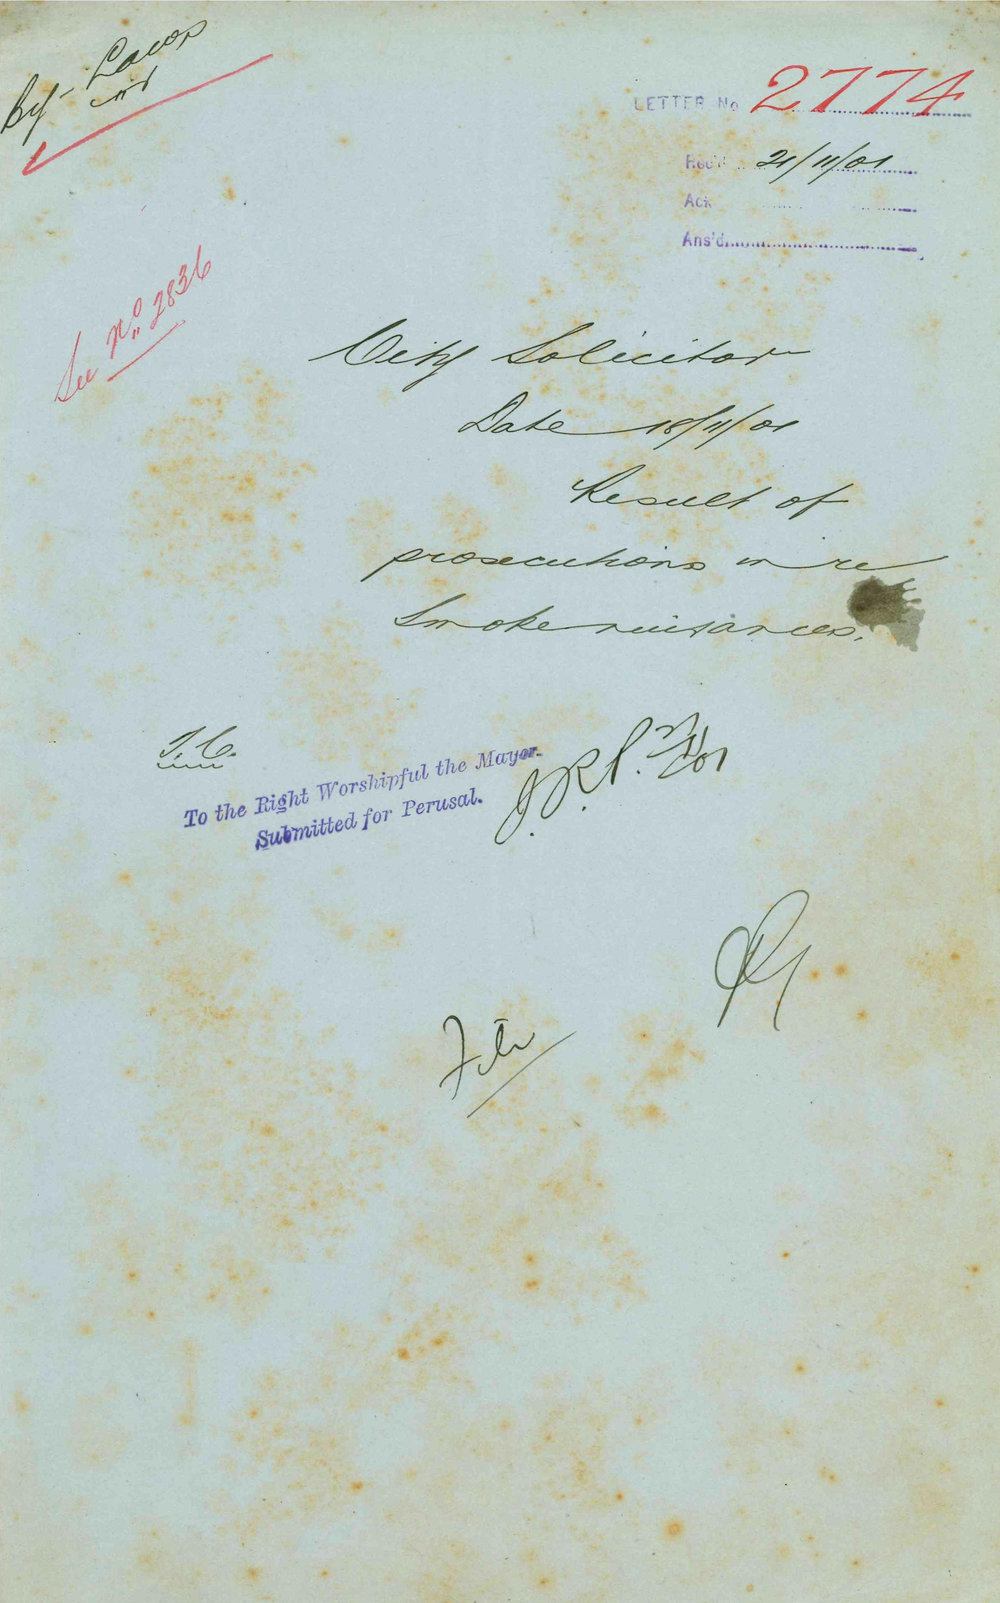 By-Laws
LETTER No 2774
Rec'd 21/11/01
Ack
Ans'd
See No. 2836
City Solicitor
Date 18/11/01
Result of
prosecutions in re
Smoke nuisances.
T.C.
To the Right Worshipful the Mayor.
Submitted for Perusal.
J.R.P.
File